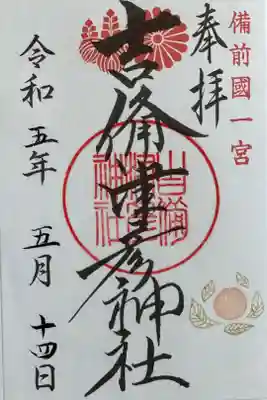 備前國一宮
奉拝
吉備津彦神社
吉備津彦神社
令和五年 五月 十四日